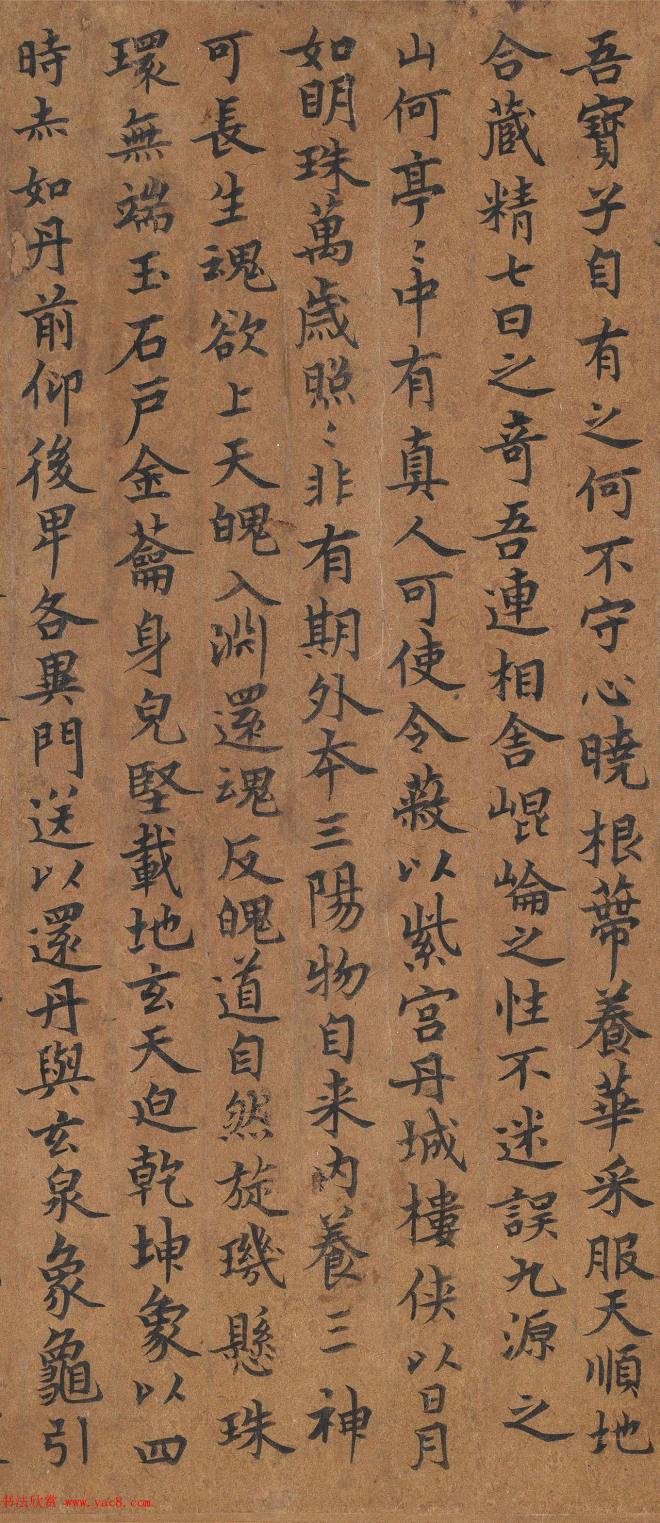 吾寶子自有之何不守心曉根蔕養華采服天順地
合藏精七日之奇吾連相舍崐崘之性不迷誤九源之
山何亭〻中有真人可使令蔽以紫宫丹城樓俠以日月
如明珠萬歲照〻非有期外本三陽物自来内養三神
可長生魂欲上天魄入淵還魂反魄道自然旋璣懸珠
環無端玉石戸金蘥身皃堅載地玄天迫乾坤象以四
時赤如丹前仰後卑各異門送以還丹與玄泉象龜引
书法欣赏 www.yac8.com